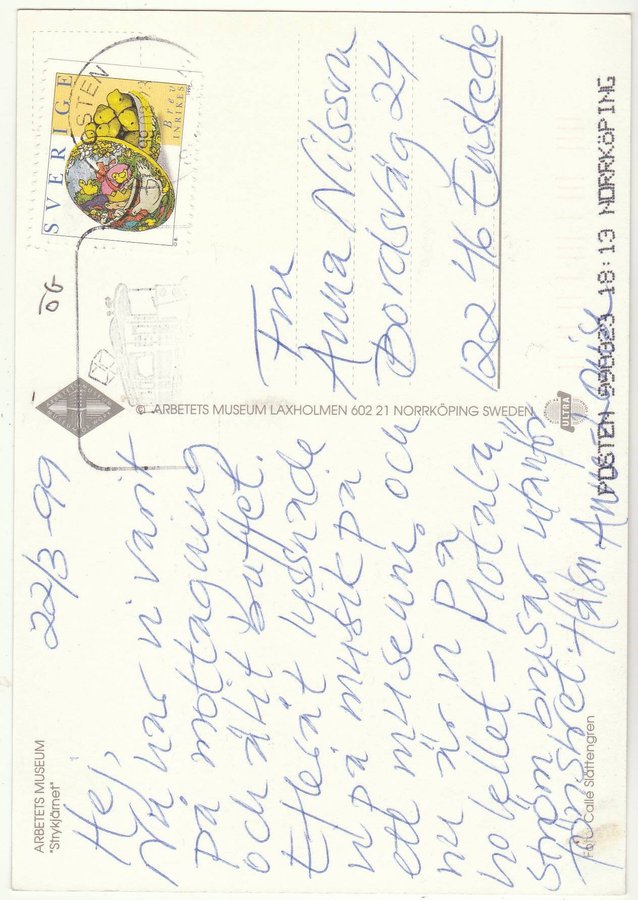 ARBETETS MUSEUM
"Strykjärnet"
22/3-99
Hej,
Nu har vi varit
på mottagning
och ätit buffet.
Efteråt lyssnade
vi på musik på
ett museum, och
nu är vi på
hotellet - Motala
ström brusar utanför
fönstret. Hälsn
Foto Calle Slättengren
© ARBETETS MUSEUM LAXHOLMEN 602 21 NORRKÖPING SWEDEN
ULTRA
SVERIGE
Brev
INRIKES
ÖG
Fru
Anna Nilsson
Bordsväg 24
122 46 Enskede
POSTEN 990323 18:13 NORRKÖPING